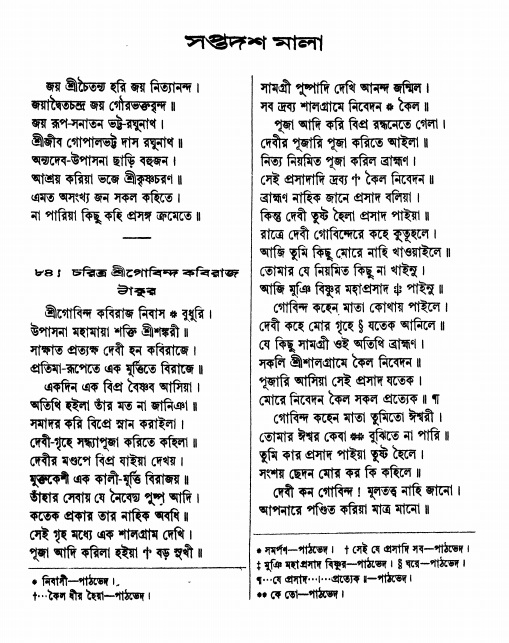 সপ্তদশ মালা
জয় শ্রীচৈতন্য হরি জয় নিত্যানন্দ।
জয়াদ্বৈতচন্দ্র জয় গৌরভক্তবৃন্দ॥
জয় রূপ-সনাতন ভট্ট-রঘুনাথ।
শ্রীজীব গোপালভট্ট দাস রঘুনাথ॥
অন্যদেব-উপাসনা ছাড়ি বহুজন।
আশ্রয় করিয়া ভজে শ্রীকৃষ্ণচরণ॥
এমত অসংখ্য জন সকল কহিতে।
না পারিয়া কিছু কহি প্রসঙ্গ ক্রমেতে॥
৮৪। চরিত্র শ্রীগোবিন্দ কবিরাজ
ঠাকুর
শ্রীগোবিন্দ কবিরাজ নিবাস * বুধুরি।
উপাসনা মহামায়া শক্তি শ্রীশঙ্করী॥
সাক্ষাত প্রত্যক্ষ দেবী হন কবিরাজে।
প্রতিমা-রূপেতে এক মূর্ত্তিতে বিরাজে॥
একদিন এক বিপ্র বৈষ্ণব আসিয়া।
অতিথি হইলা তাঁর মত না জানিঞা॥
সমাদর করি বিপ্রে স্নান করাইলা।
দেবী-গৃহে সন্ধ্যাপূজা করিতে কহিলা॥
দেবীর মণ্ডপে বিপ্র যাইয়া দেখয়।
মুক্তকেশী এক কালী-মূর্ত্তি বিরাজয়॥
তাঁহার সেবায় যে নৈবেদ্য পুষ্প আদি।
কতেক প্রকার তার নাহিক অবধি॥
সেই গৃহ মধ্যে এক শালগ্রাম দেখি।
পূজা আদি করিলা হইয়া † বড় সুখী॥
* নিবাসী—পাঠভেদ।
†···কৈল ধীর হৈয়া—পাঠভেদ।
সামগ্রী পুষ্পাদি দেখি আনন্দ জন্মিল।
সব দ্রব্য শালগ্রামে নিবেদন * কৈল॥
পূজা আদি করি বিপ্র রন্ধনেতে গেলা।
দেবীর পূজারি পূজা করিতে আইলা॥
নিত্য নিয়মিত পূজা করিল ব্রাহ্মণ।
সেই প্রসাদাদি দ্রব্য † কৈল নিবেদন॥
ব্রাহ্মণ নাহিক জানে প্রসাদ বলিয়া।
কিন্তু দেবী তুষ্ট হৈলা প্রসাদ পাইয়া॥
রাত্রে দেবী গোবিন্দেরে কহে কুতূহলে।
আজি তুমি কিছু মোরে নাহি খাওয়াইলে॥
তোমার যে নিয়মিত কিছু না খাইনু।
আজি মুঞি বিষ্ণুর মহাপ্রসাদ ‡ পাইনু॥
গোবিন্দ কহেন মাতা কোথায় পাইলে।
দেবী কহে মোর গৃহে § যতেক আনিলে॥
যে কিছু সামগ্রী ওই অতিথি ব্রাহ্মণ।
সকলি শ্রীশালগ্রামে কৈল নিবেদন॥
পূজারি আসিয়া সেই প্রসাদ যতেক।
মোরে নিবেদন কৈল সকল প্রত্যেক॥ ¶
গোবিন্দ কহেন মাতা তুমিতো ঈশ্বরী।
তোমার ঈশ্বর কেবা ** বুঝিতে না পারি॥
তুমি কার প্রসাদ পাইয়া তুষ্ট হৈলে।
সংশয় ছেদন মোর কর কি কহিলে॥
দেবী কন গোবিন্দ! মূলতত্ত্ব নাহি জানো।
আপনারে পণ্ডিত করিয়া মাত্র মানো॥
* সমর্পণ—পাঠভেদ। † সেই যে প্রসাদি সব—পাঠভেদ।
‡ মুঞি মহাপ্রসাদ বিষ্ণুর—পাঠভেদ। § ঘরে—পাঠভেদ।
¶···যে প্রসাদ···।···প্রত্যেক॥—পাঠভেদ।
** কে তো—পাঠভেদ।